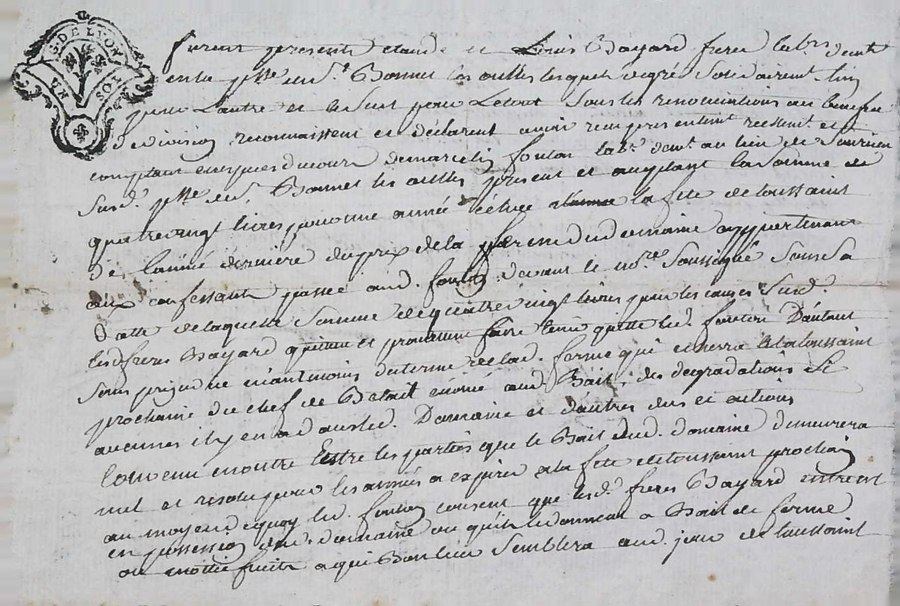 G. DE LYON
furent présents claude et Louis Bayard frères lab.rs dem.t
en la p.sse de S.t Bonnet les oulles lesquels de gré solidairem.t l'un
pour l'autre et le seul pour le tout sous les renonciations au bénéfice
de division reconnaissent et déclarent avoir reçu présentem.t réellem.t et
comptant en espèces du cours de marcelin foulon lab.r dem.t au lieu de
susd. p.sse de S.t Bonnet les oulles présent et acceptant la somme de
quatre vingt livres pour une année échue à la fête de toussaint
de l'année dernière du prix de la ferme du domaine appartenant
aux confessants passée aud. foulon devant le no.re soussigné sous sa
datte de laquelle somme de quatre vingt livres pour les causes susd.
lesd. frères Bayard quittent et promettent faire tenir quitte led. foulon D'autant
sans préjudice néantmoins du terme de lad. ferme qui écherra à la toussaint
prochaine du chef de bétail énoncé aud. Bail, des dégradations si
aucunes il y en a dans led. Domaine et d'autres dus et actions
Convenu en outre Entre les parties que le Bail dud. domaine demeurera
nul et résolu pour les années à expirer à la fête de toussaint prochain
au moyen de quoy led. foulon consent que lesd. frères Bayard entrent
en possession dud. domaine ou qu'ils le donnent à Bail de ferme
ou moitié fruits à qui Bon leur semblera aud. jour de toussaint